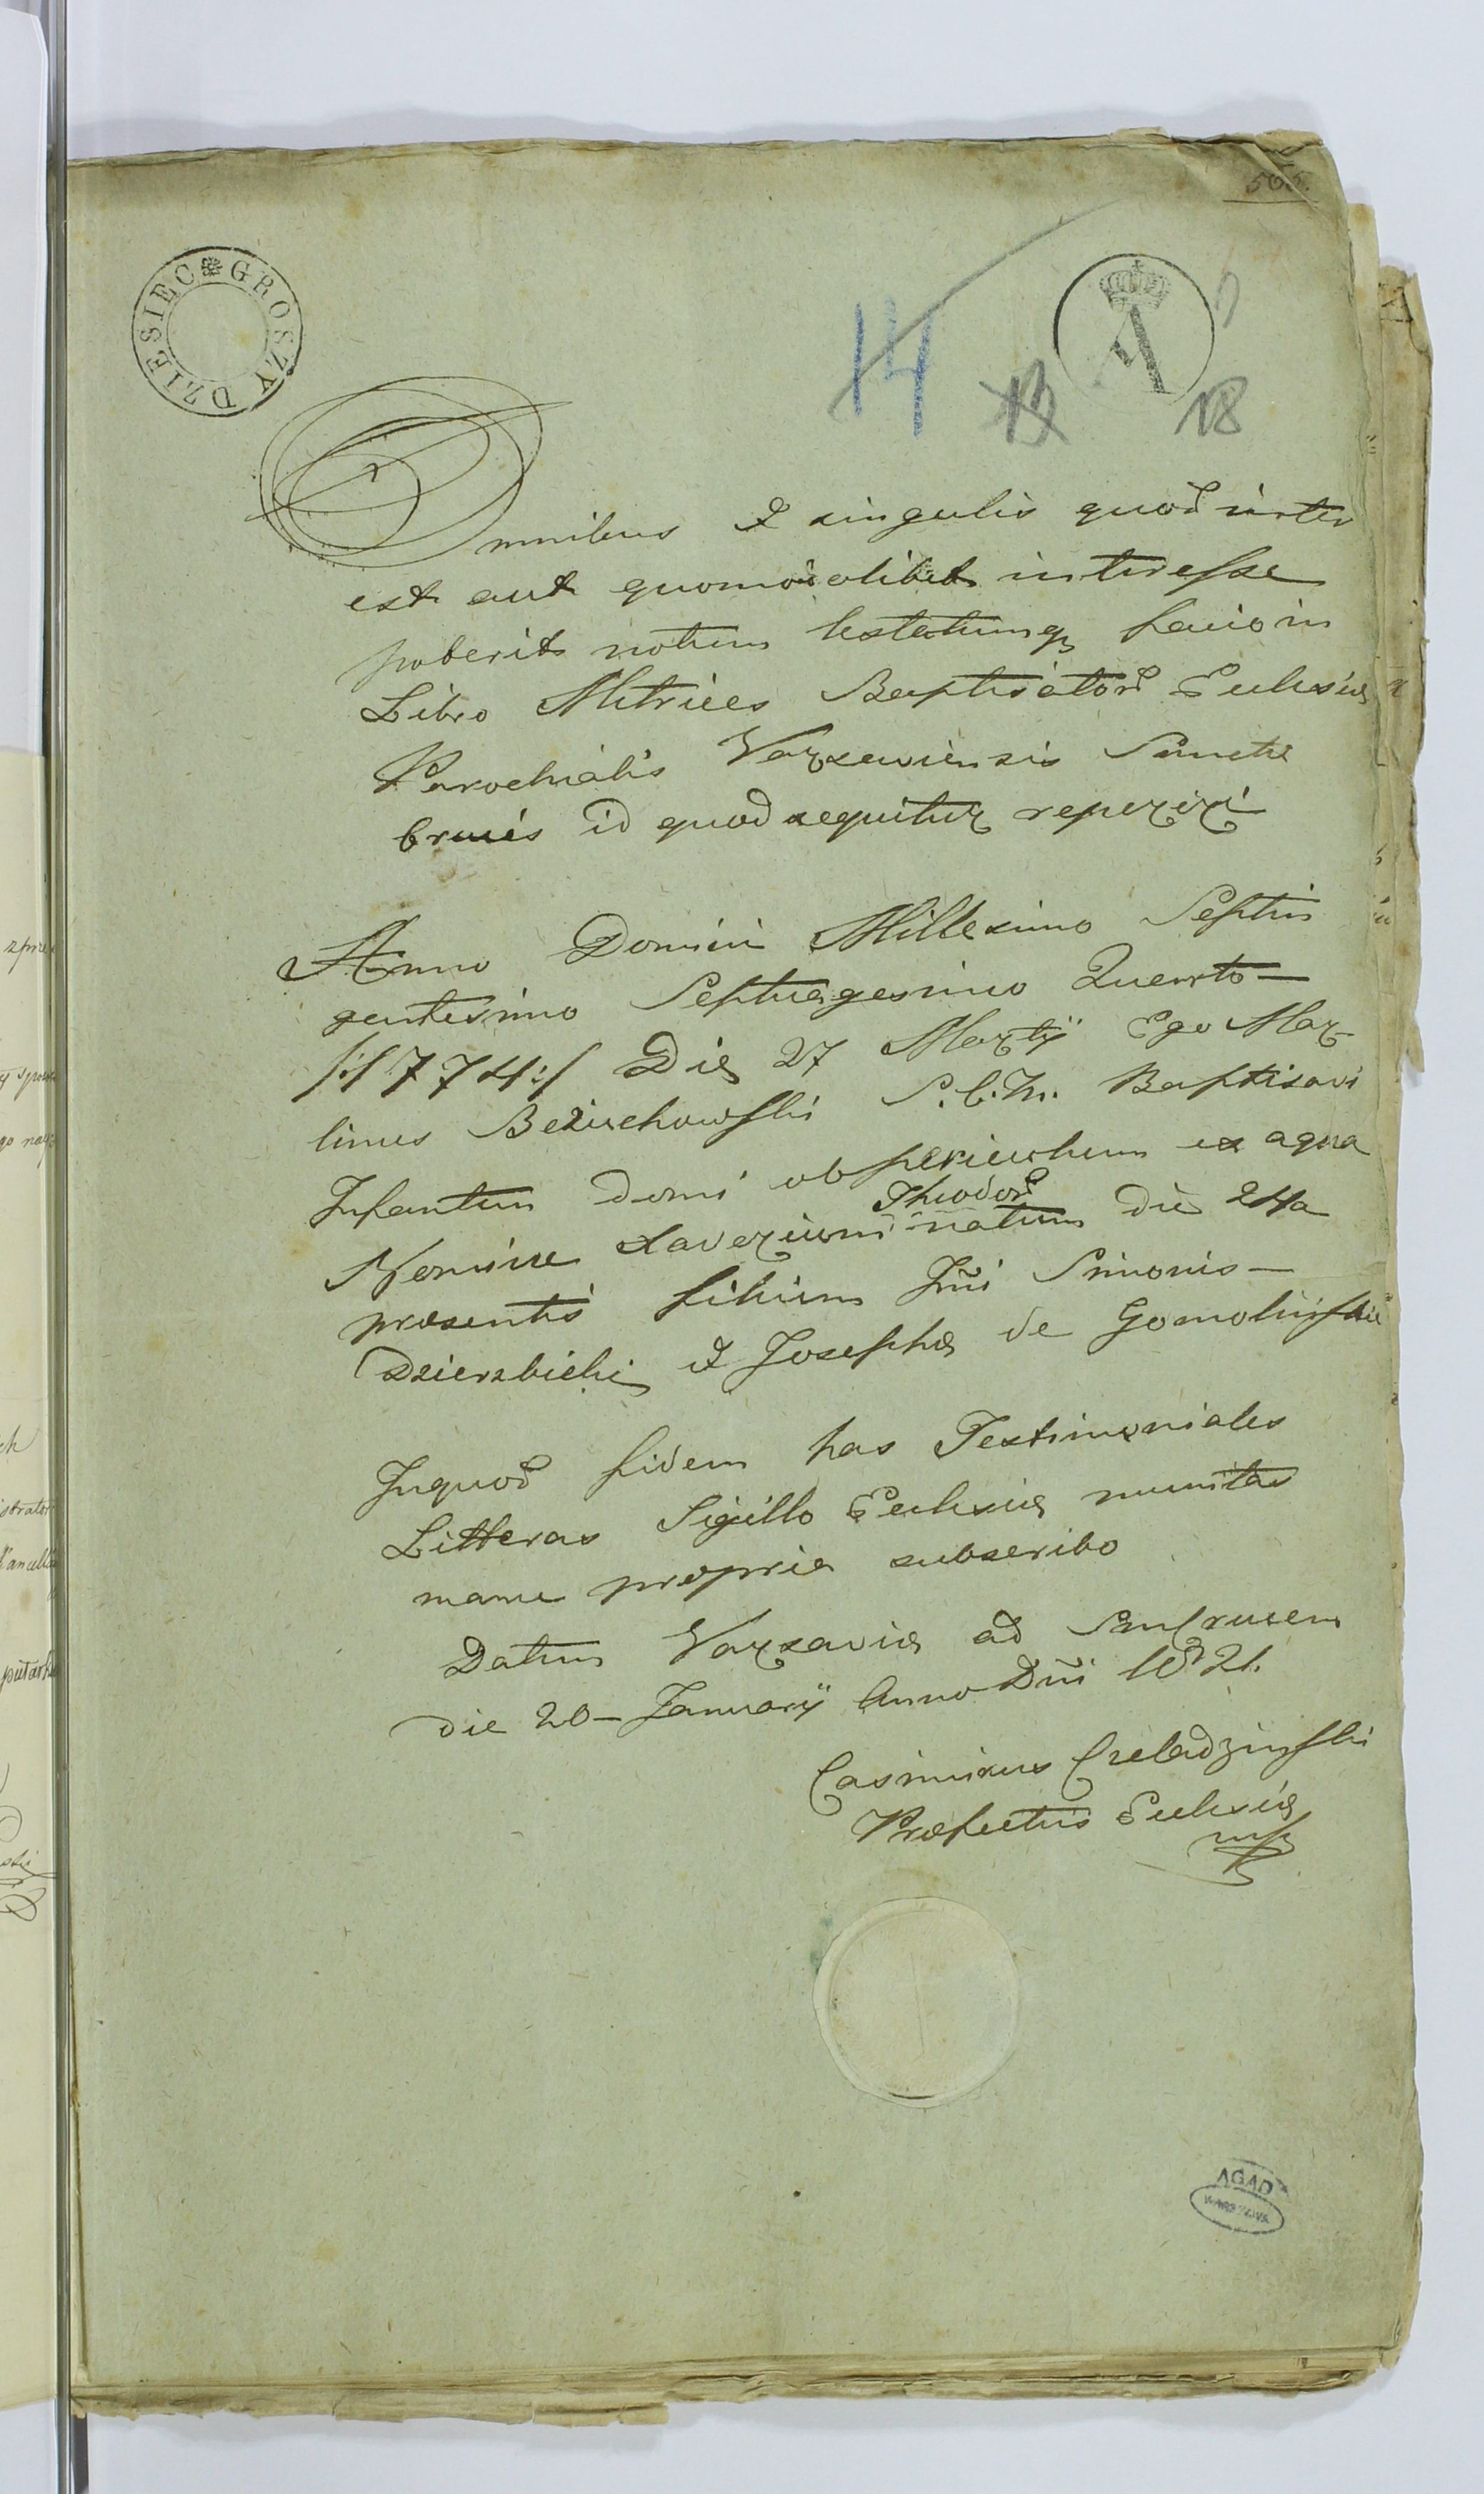 565.
DZIESIEC GROSZY
14
A
13
18
Omnibus et singulis quod inter
est aut quomodolibet interesse
poterit notum testatumq facio in
Libro Metrices Baptisator Ecclesiæ
Parochialis Varsaviensis Sanctæ
crucis id quod sequitur reperiri
Anno Domini Millesimo Septin
gentesimo Septuagesimo Quarto —
/:1774:/ Die 27 Martij Ego Mar-
linus Bezuchowski S. C. M. Baptisavi
Infantem domi ob periculum ex aqua
Theodor
Nomine Xaverium natum die 24a
præsentis filium Jñi Simonis —
Dzierzbicki et Josephæ de Gomolińskie
Inquod fidem has Testimoniales
Litteras Sigillo Ecclesiæ munitas
manu propria subscribo
Datum Varsaviæ ad Smrucem
die 20 — Januarij Anno Dñi 1821.
Casimirus Czeladziński
Præfectus Ecclesiæ
mp
AGAD
WARSZAWA